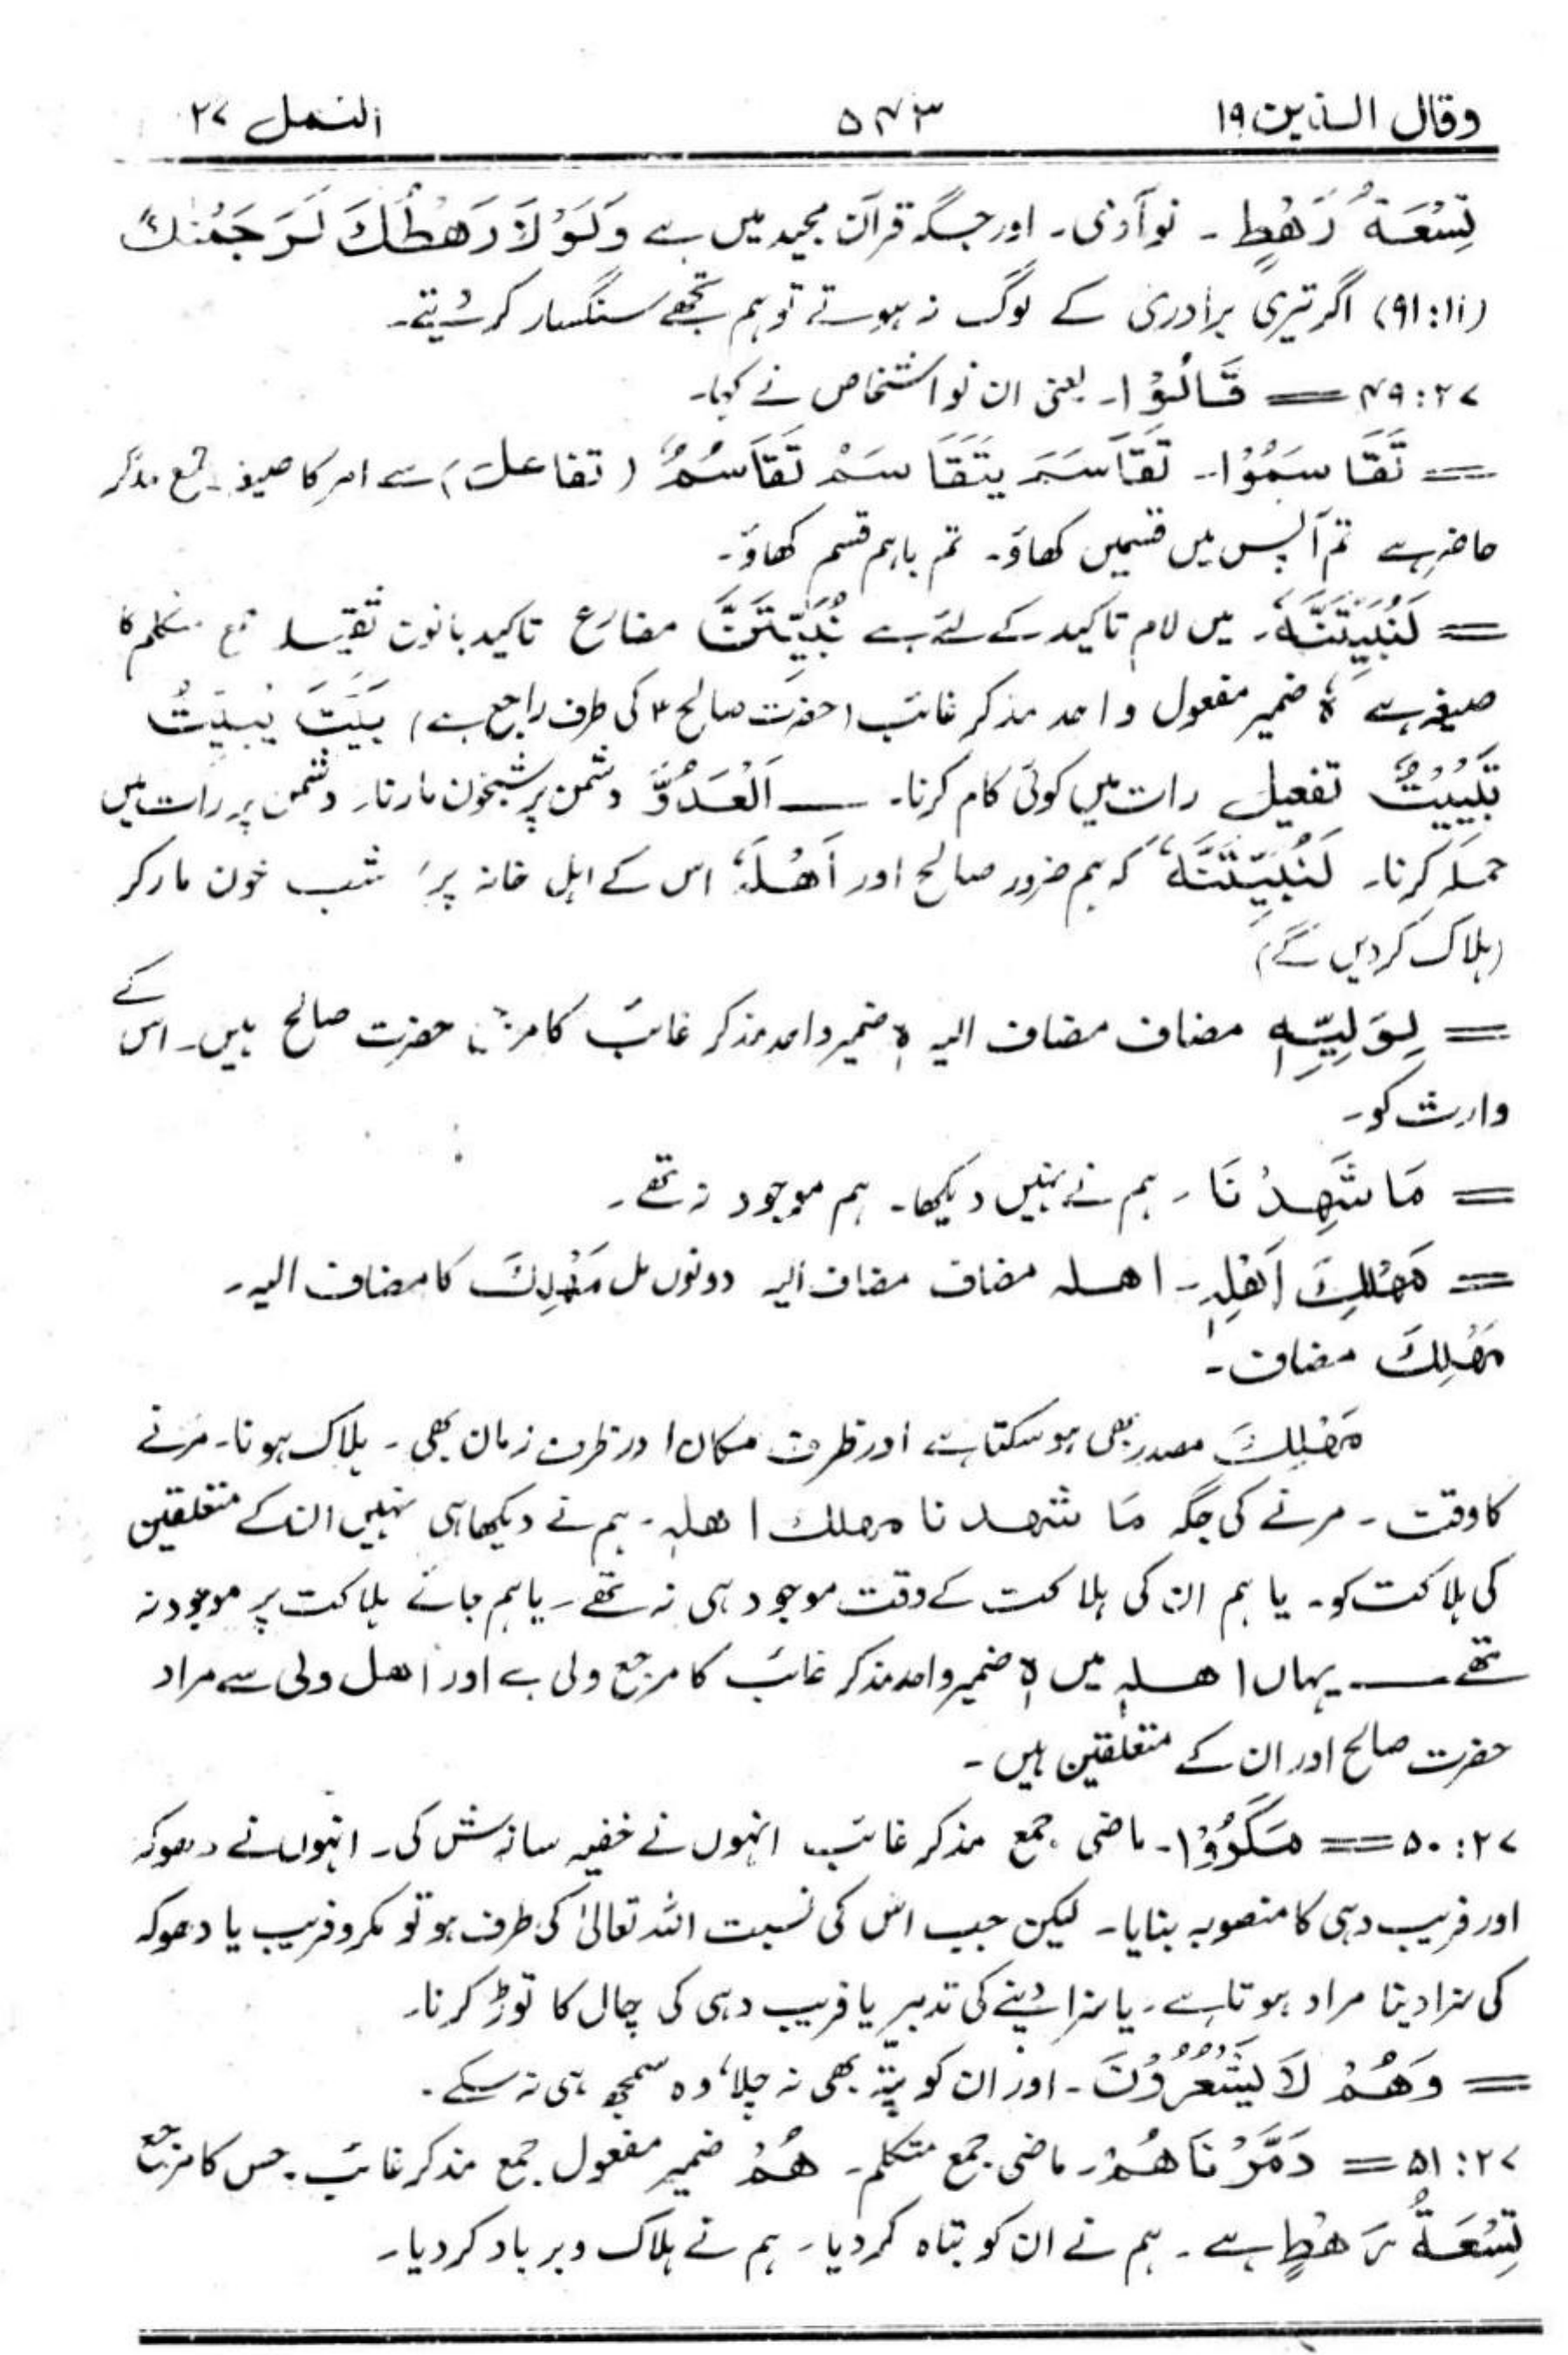 وقال الذین ۱۹ ۵۴۳ النمل ۲۷
تِسْعَۃُ رَھْطٍ ۔ نو آدمی ۔ اور جگہ قرآن مجید میں ہے وَلَوْلَا رَھْطُكَ لَرَجَمْنٰكَ
(۱۱:۹۱) اگر تیری برادری کے لوگ نہ ہوتے تو ہم تجھے سنگسار کر دیتے۔
۲۷:۴۹ = قَالُوْا۔ یعنی ان نو اشخاص نے کہا۔
= تَقَاسَمُوْا۔ تَقَاسَمَ یَتَقَاسَمُ تَقَاسُمٌ (تفاعل) سے امر کا صیغہ جمع مذکر
حاضر ہے تم آپس میں قسمیں کھاؤ۔ تم باہم قسم کھاؤ۔
= لَنُبَیِّتَنَّہٗ۔ میں لام تاکید کے لئے ہے نُبَیِّتَنَّ مضارع تاکید بانون ثقیلہ جمع متکلم کا
صیغہ ہے ہٗ ضمیر مفعول واحد مذکر غائب (حضرت صالحؑ کی طرف راجع ہے) بَیَّتَ یُبَیِّتُ
تَبْیِیْتٌ تفعیل رات میں کوئی کام کرنا۔ — اَلْعَدُوَّ دشمن پر شبخون مارنا۔ دشمن پر رات میں
حملہ کرنا۔ لَنُبَیِّتَنَّہٗ کہ ہم ضرور صالح اور اَھْلَہٗ اس کے اہل خانہ پر شب خون مار کر
(ہلاک کر دیں گے)
= لِوَلِیِّہٖ مضاف مضاف الیہ ہٖ ضمیر واحد مذکر غائب کا مرجع حضرت صالح ہیں۔ اس کے
وارث کو۔
= مَا شَھِدْنَا۔ ہم نے نہیں دیکھا۔ ہم موجود نہ تھے۔
= مَھْلِكَ اَھْلِہٖ۔ اھلہ مضاف مضاف الیہ دونوں مل مَھْلِكَ کا مضاف الیہ۔
مَھْلِكَ مضاف۔
مَھْلِكَ مصدر بھی ہو سکتا ہے اور ظرف مکان اور ظرف زمان بھی۔ ہلاک ہونا۔ مرنے
کا وقت۔ مرنے کی جگہ مَا شھدنا مھلك اھلہٖ۔ ہم نے دیکھا ہی نہیں ان کے متعلقین
کی ہلاکت کو۔ یا ہم ان کی ہلاکت کے وقت موجود ہی نہ تھے۔ یا ہم جائے ہلاکت پر موجود نہ
تھے — یہاں اھلہٖ میں ہٖ ضمیر واحد مذکر غائب کا مرجع ولی ہے اور اھل ولی سے مراد
حضرت صالح اور ان کے متعلقین ہیں۔
۲۷:۵۰ = مَکَرُوْا۔ ماضی جمع مذکر غائب انہوں نے خفیہ سازش کی۔ انہوں نے دھوکہ
اور فریب دہی کا منصوبہ بنایا۔ لیکن جب اس کی نسبت اللہ تعالیٰ کی طرف ہو تو مکر و فریب یا دھوکہ
کی سزا دینا مراد ہوتا ہے۔ یا سزا دینے کی تدبیر یا فریب دہی کی چال کا توڑ کرنا۔
= وَھُمْ لَا یَشْعُرُوْنَ۔ اور ان کو پتہ بھی نہ چلا، وہ سمجھ ہی نہ سکے۔
۲۷:۵۱ = دَمَّرْنَاھُمْ۔ ماضی جمع متکلم۔ ھُمْ ضمیر مفعول جمع مذکر غائب۔ جس کا مرجع
تِسْعَۃُ رَھْطٍ ہے۔ ہم نے ان کو تباہ کر دیا۔ ہم نے ہلاک و برباد کر دیا۔